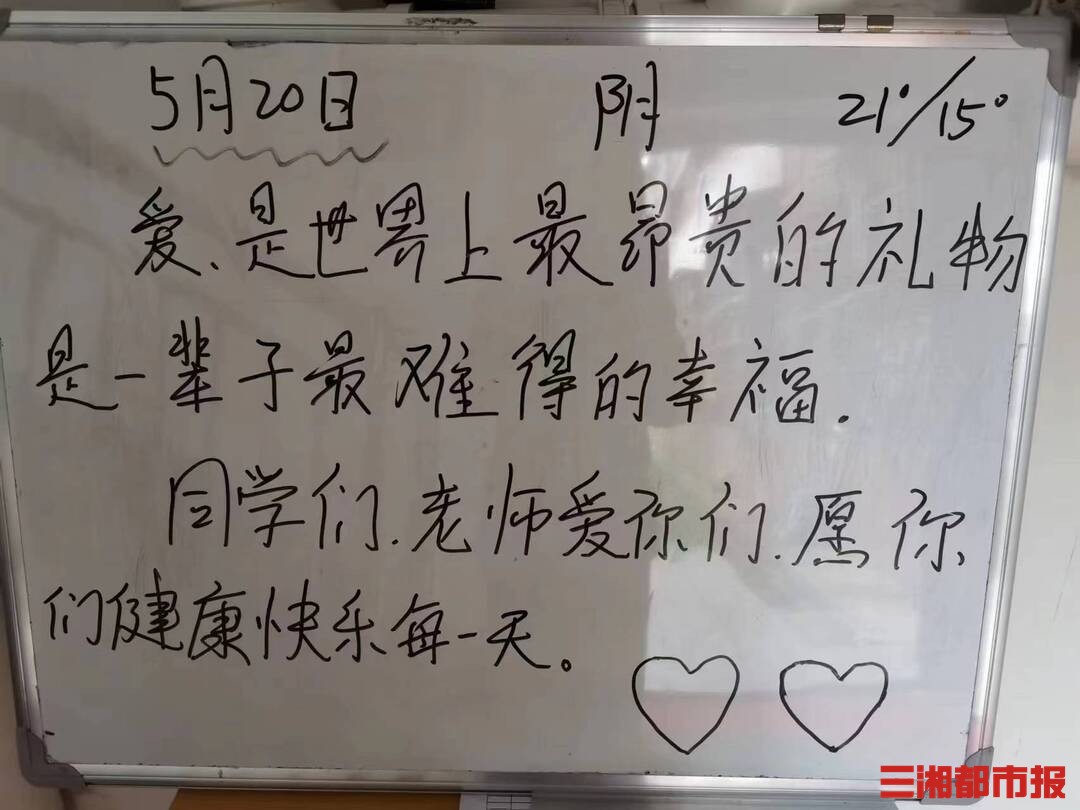 5月20日 阴 21°/15°
爱、是世界上最昂贵的礼物
是一辈子最难得的幸福.
同学们.老师爱你们.愿你
们健康快乐每一天。
三湘都市报